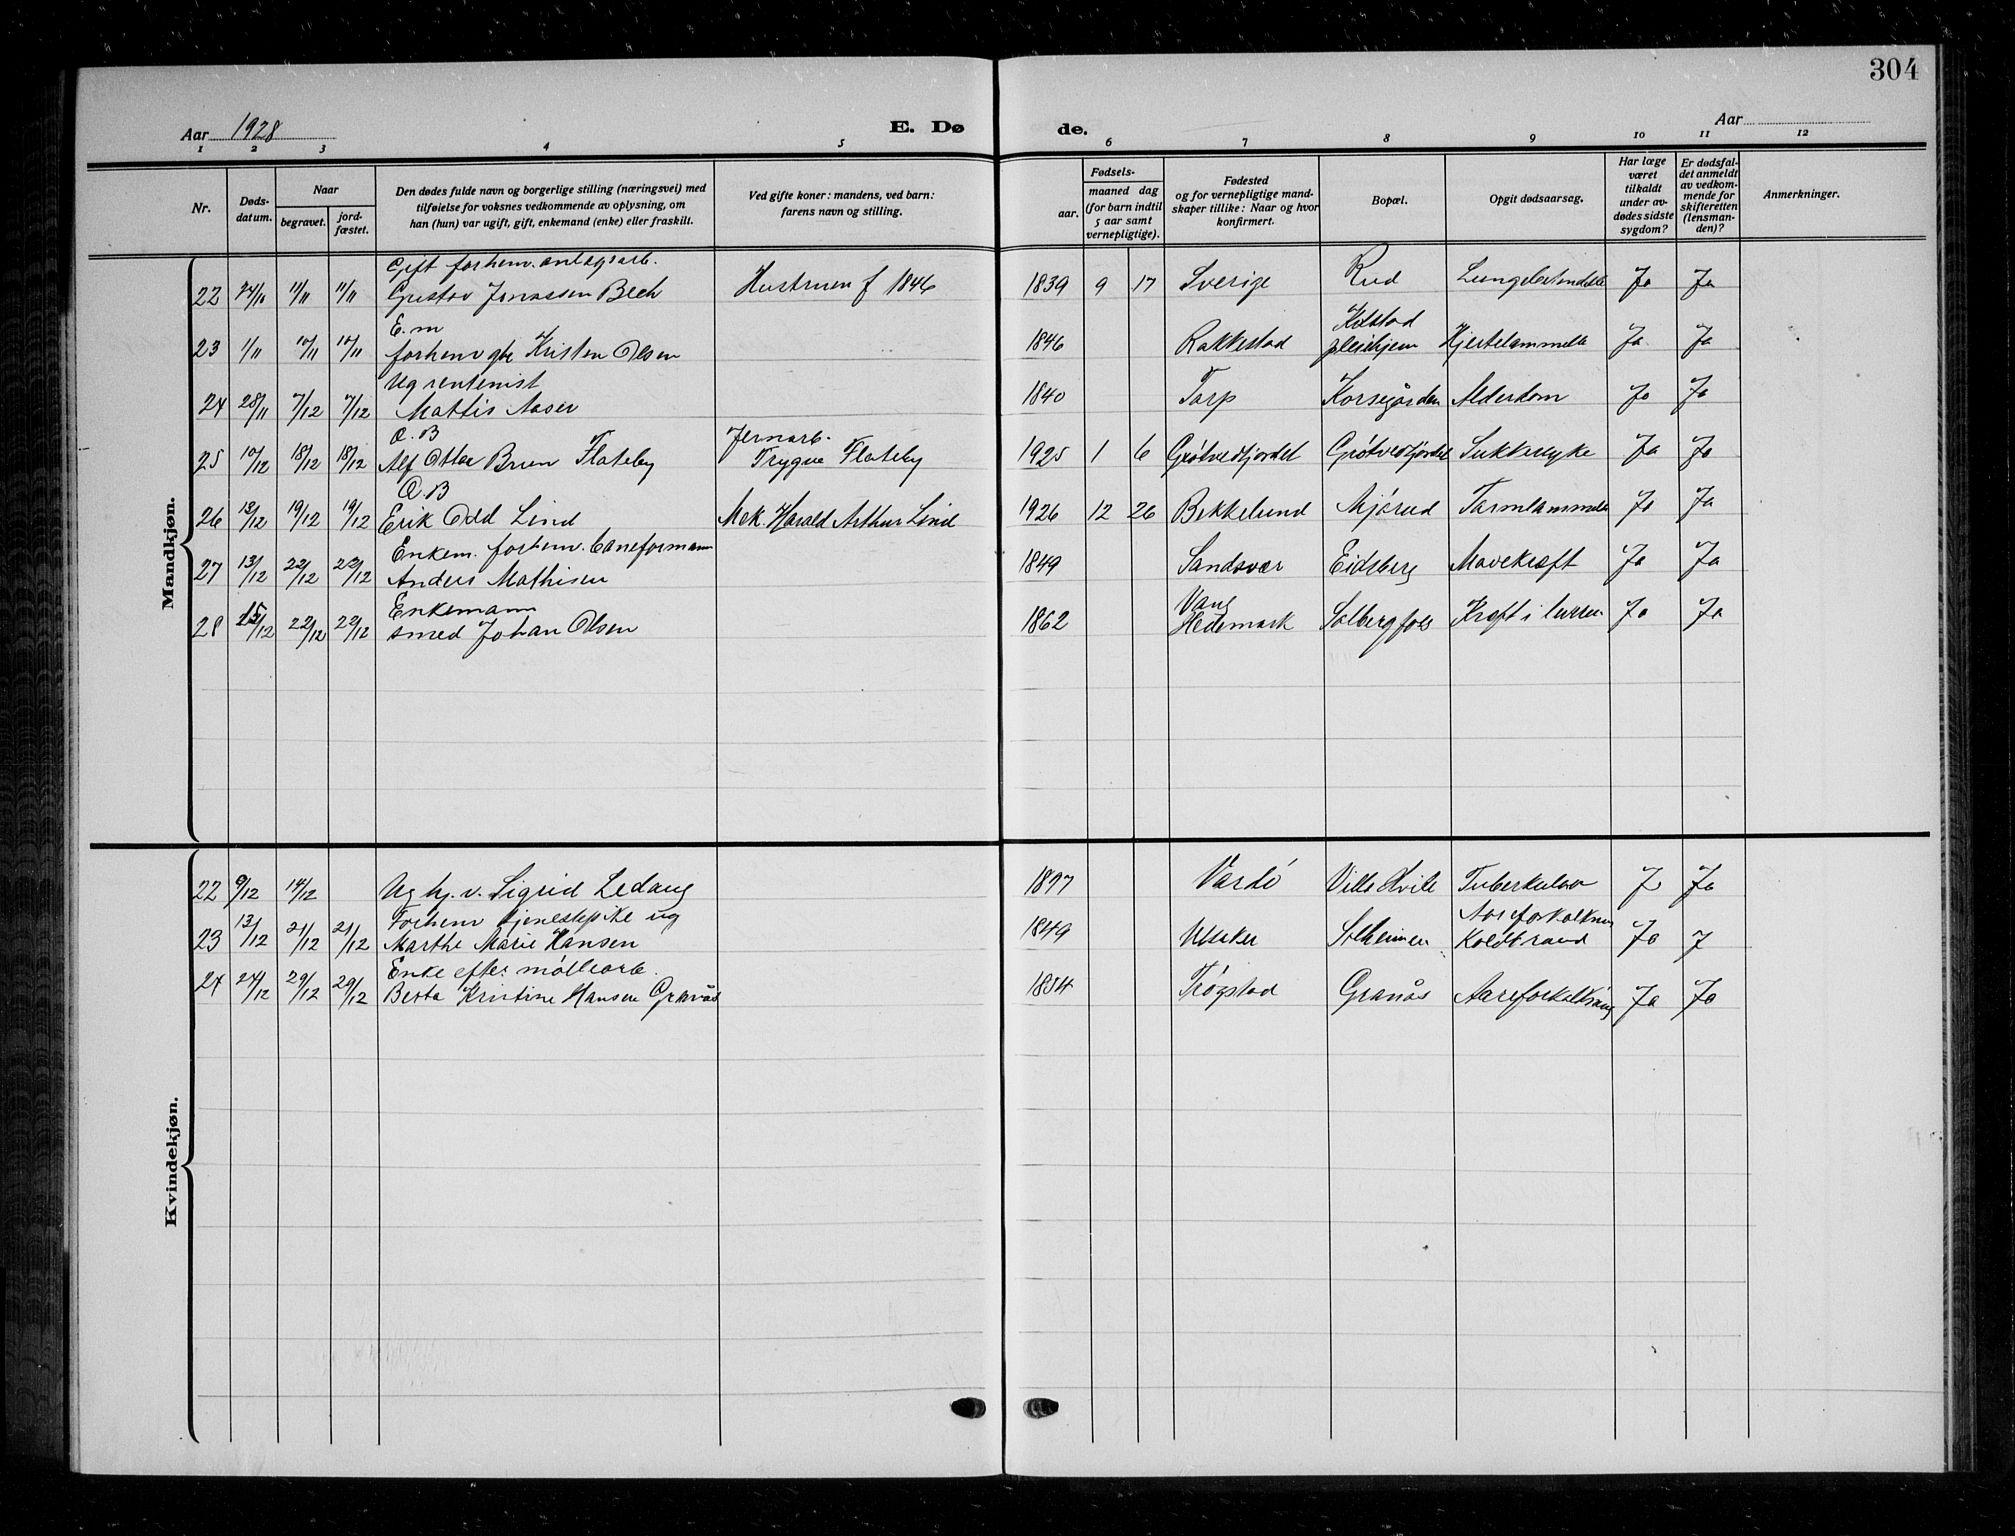 304
Aar 1928
E. Dø
de.
Aar
1 2 3 4 5 6 7 8 9 10 11 12
Nr.
Døds-
datum.
Naar
begravet.
jord-
fæstet.
Den dødes fulde navn og borgerlige stilling (næringsvei) med
tilføielse for voksnes vedkommende av oplysning, om
han (hun) var ugift, gift, enkemand (enke) eller fraskilt.
Ved gifte koner: mandens, ved barn:
farens navn og stilling.
Fødsels-
aar.
maaned dag
(for barn indtil
5 aar samt
vernepligtige).
Fødested
og for vernepligtige mand-
skaper tillike: Naar og hvor
konfirmert.
Bopæl.
Opgit dødsaarsag.
Har læge
været
tilkaldt
under av-
dødes sidste
sygdom?
Er dødsfal-
det anmeldt
av vedkom-
mende for
skifteretten
(lensman-
den)?
Anmerkninger.
Mandkjøn.
Gift forhenv. anlegsarb.
22 24/10 11/11 11/11 Gustav Jonassen Bech Hustruen f 1846 1839 9 17 Sverige Rud Ja Ja
E.m
23 1/11 10/11 10/11 forhenv gbr Kristen Olsen 1846 Rakkestad Kolstad pleiehjem Hjertelammelse Ja Ja
Ug rentenist
24 28/11 7/12 7/12 Mattis Aaser 1840 Torp Korsegården Alderdom Ja Ja
O.B Jernarb.
25 10/12 18/12 18/12 Alf Otter Bruen Flateby Trygve Flateby 1925 1 6 Grøtvedtjordet Grøtvedtjordet Sukkersyke Ja Ja
O.B
26 13/12 19/12 19/12 Erik Odd Lind Mek. Harald Arthur Lind 1926 12 26 Bekkelund Mjørud Tarmlammelse Ja Ja
Enkem. forhenv. baneformann
27 13/12 22/12 22/12 Anders Mathisen 1849 Sandsvær Eidsberg Mavekræft Ja Ja
Enkemann Vang
28 15/12 22/12 22/12 smed Johan Olsen 1862 Hedemark Solbergfoss Kræft i Ja Ja
Kvindekjøn.
22 9/12 14/12 Ug hj. v. Sigrid Ledang 1897 Vardö Villa Hvile Tuberkulose J Ja
Forhenv tjenestepike ug Aareforkalkning
23 13/12 21/12 21/12 Marthe Marie Hansen 1849 Solheimen Koldbrand Ja J
Enke efter möllearb.
24 24/12 29/12 29/12 Berta Kristine Hansen Granås 1854 Trøgstad Granås Aareforkalkning Ja Ja